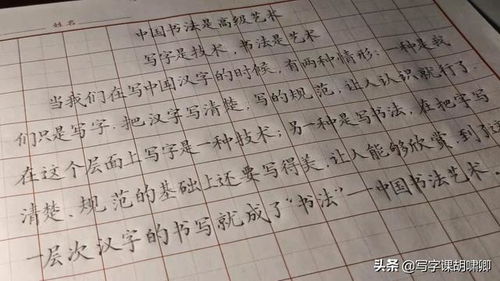 姓名
中国书法是高级艺术
写字是技术，书法是艺术
当我们在写中国汉字的时候，有两种情形：一种是我
们只是写字，把汉字写清楚，写的规范，让人认识就行了。
在这个层面上写字是一种技术；另一种是写书法，在把字写
清楚、规范的基础上还要写得美，让人能够欣赏，到了这
一层次汉字的书写就成了“书法”—中国书法艺术。
头条 @写字课胡啸卿